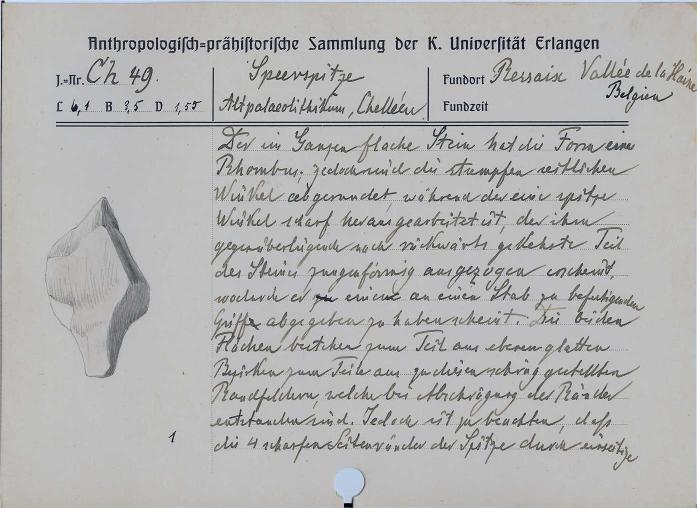 Anthropologisch=prähistorische Sammlung der K. Universität Erlangen
J.=Nr. Ch 49.
L 6,1 B 3,5 D 1,55
Speerspitze
Altpalaeolithikum, Chelléen
Fundort Ressaix Vallée de la Haine
Belgien
Fundzeit
Der im Ganzen flache Stein hat die Form eines
Rhombus; jedoch sind die stumpfen seitlichen
Winkel abgerundet während der eine spitze
Winkel scharf herausgearbeitet ist, der ihm
gegenüberliegende nach rückwärts gekehrte Teil
des Steines zungenförmig ausgezogen erscheint,
wodurch er einen an einen Stab zu befestigenden
Griff abgegeben zu haben scheint. Die beiden
Flächen bestehen zum Teil aus ebenen glatten
Bezirken zum Teile aus zu diesen schräg gestellten
Randfeldern, welche bei Abschrägung der Ränder
entstanden sind. Jedoch ist zu beachten, daß
die 4 scharfen Seitenränder der Spitze durch einseitige
1